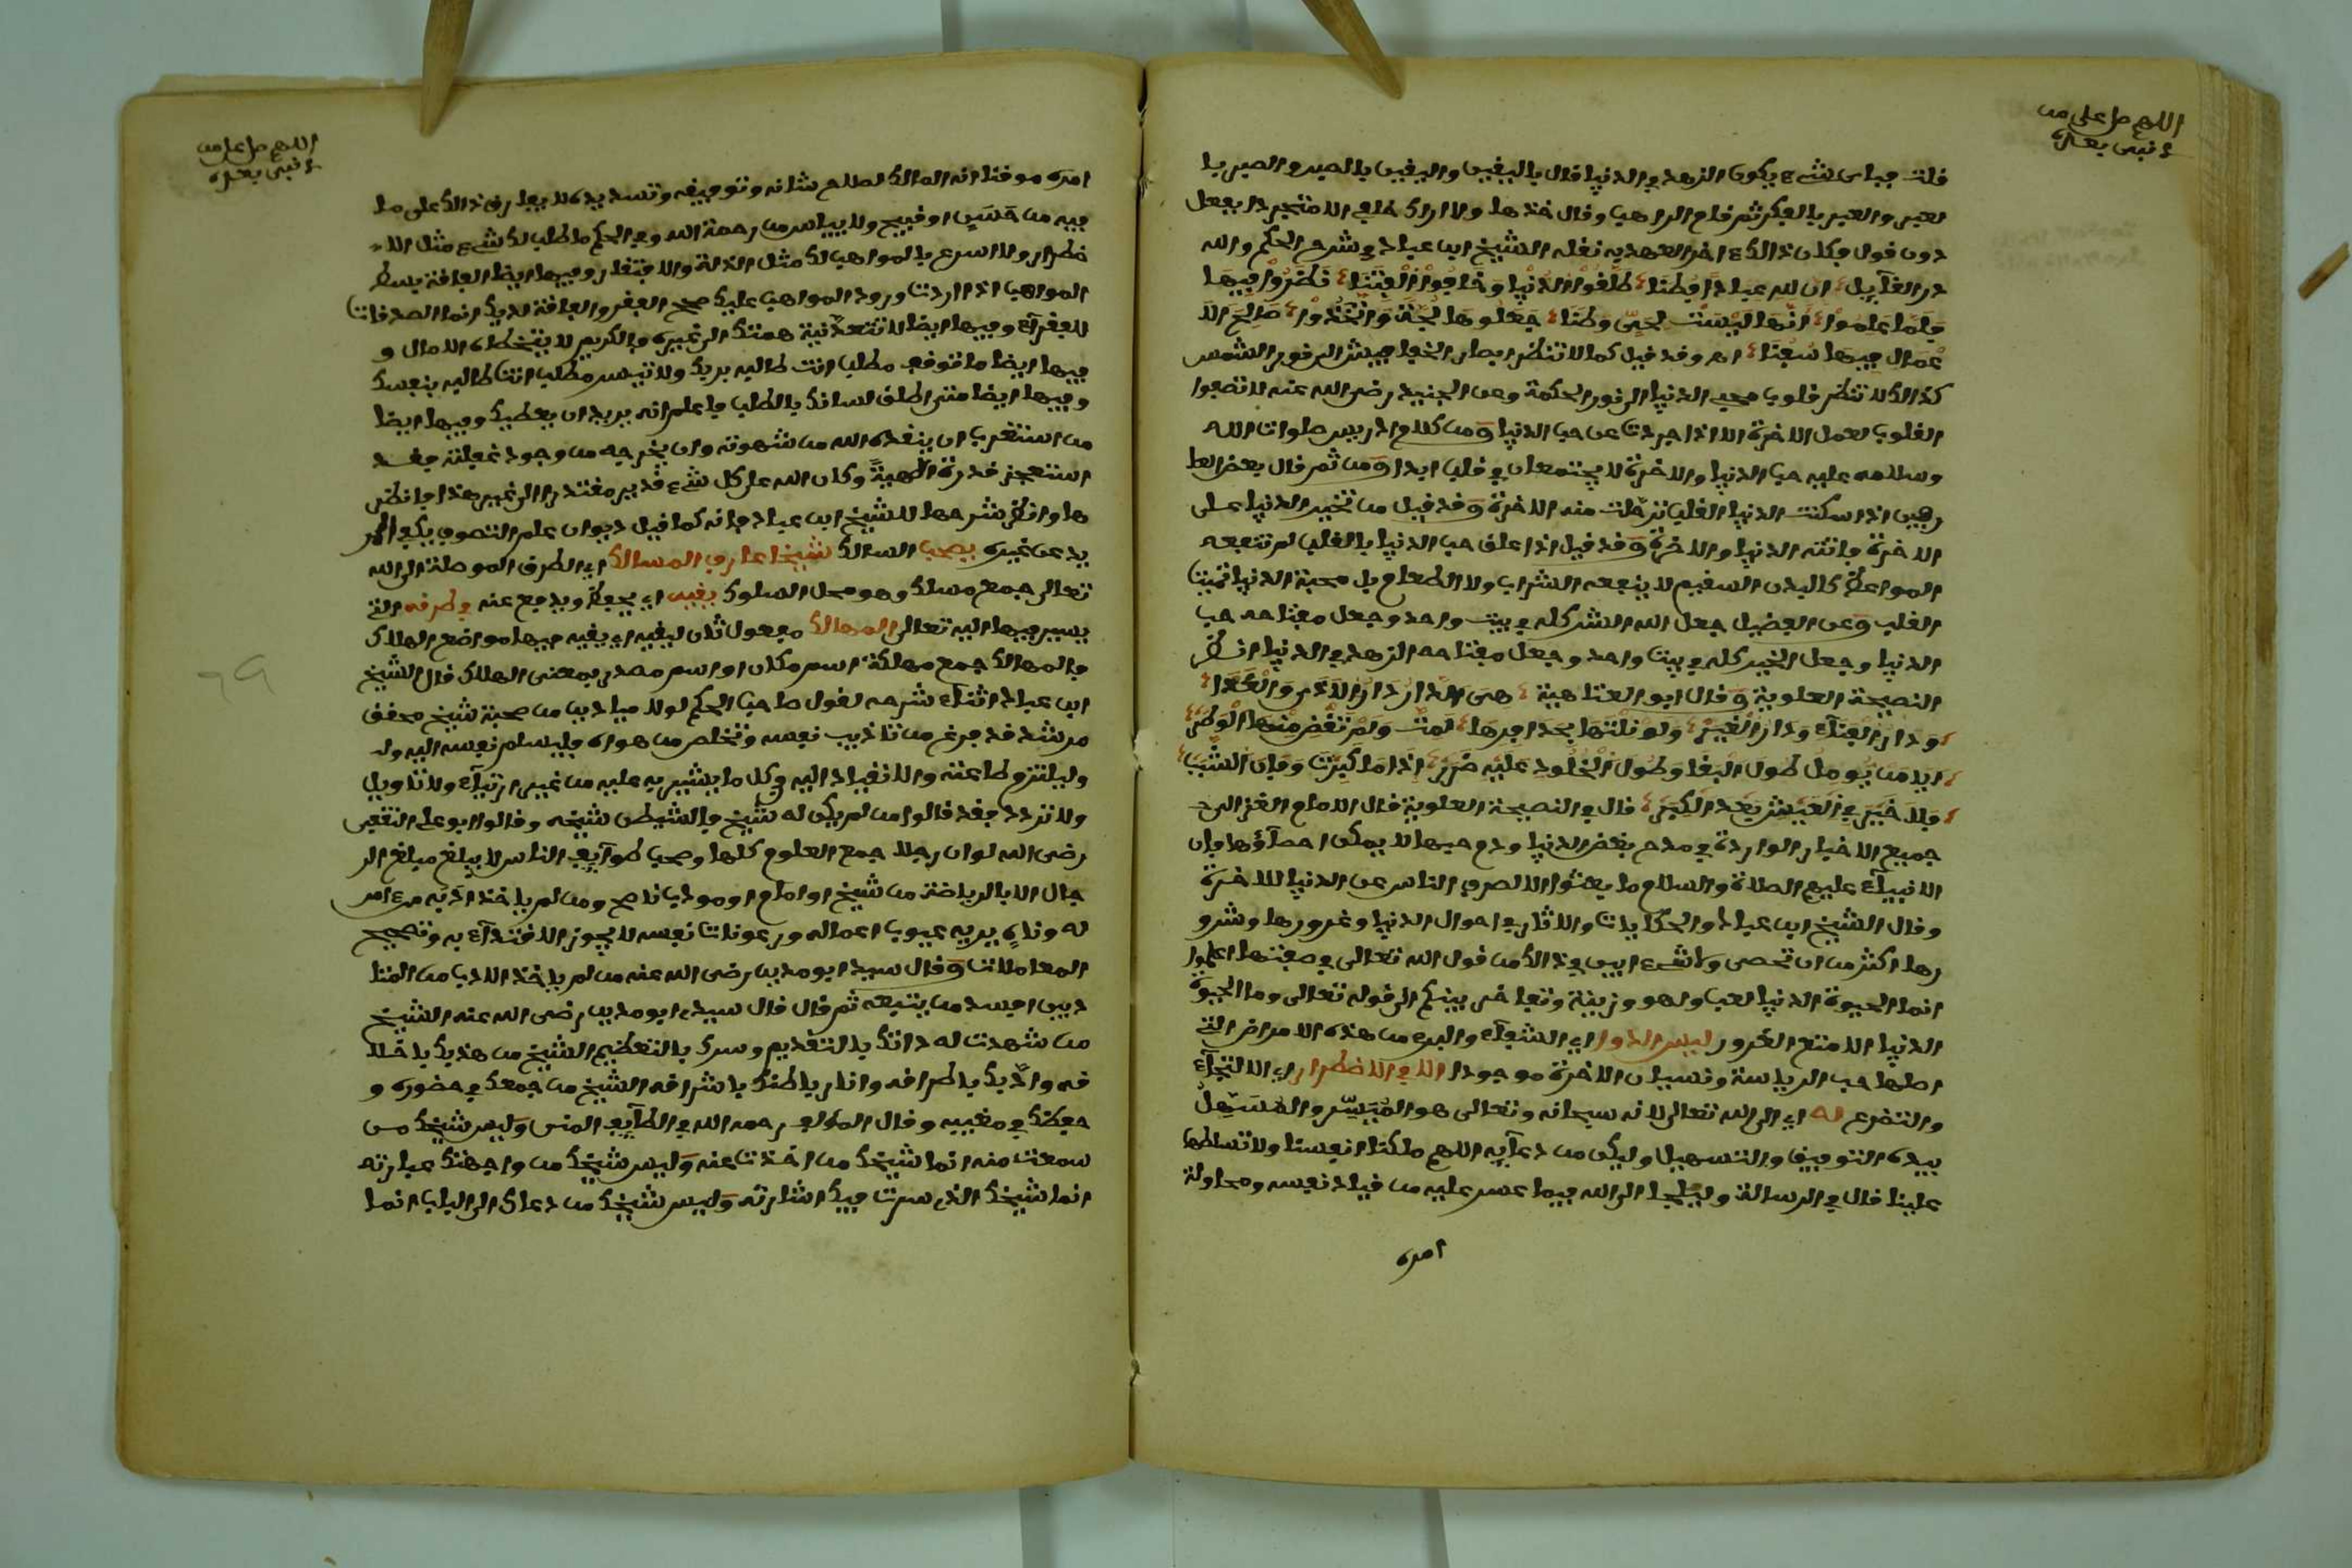 اللهم صل على من
لا نبي بعده
قلت فبأي شيء يكون الزهد في الدنيا قال باليقين واليقين بالصبر والصبر بال
لعبر والعبر بالفكر ثم قام الراهب وقال خذها ولا اراك خلفي الا متجردا بفعل
دون قول وكان ذالك اخر العهد به نقله الشيخ ابن عباد في شرح الحكم ولله
در القآيل ان لله عبادا فطنا طلقوا الدنيا وخافوا الفتنا نظروا فيها
فلما علموا انها ليست لحي وطنا جعلوها لجة واتخذوا صالح الا
عمال فيها سفنا اه وقد قيل كما لا تنظر ابصار الخفافيش الى نور الشمس
كذالك لا تنظر قلوب محبي الدنيا الى نور الحكمة وعن الجنيد رضي الله عنه لا تصفوا
القلوب لعمل الاخرة الا اذا جردت عن حب الدنيا ومن كلام ادريس صلوات الله
وسلامه عليه حب الدنيا والاخرة لا يجتمعان في قلب ابدا ومن ثم قال بعض العا
رفين اذا سكنت الدنيا القلب ترحلت منه الاخرة وقد قيل من تخير الدنيا على
الاخرة فاتته الدنيا والاخرة وقد قيل اذا علق حب الدنيا بالقلب لم تنفعه
المواعظ كالبدن السقيم لا ينفعه الشراب ولا الطعام بل محبة الدنيا تميت
القلب وعن الفضيل جعل الله الشر كله في بيت واحد وجعل مفتاحه حب
الدنيا وجعل الخير كله في بيت واحد وجعل مفتاحه الزهد في الدنيا انظر
النصيحة العلوية وقال ابو العتاهية هي الدار دار الاذى والقذا
ودار الفنآء ودار الغير ولو نلتها بحذافيرها لمت ولم تقض منها الوطر
ايا من يؤمل طول البقا وطول الخلود عليه ضرر اذا ما كبرت وفات الشباب
فلا خير في العيش بعد الكبر قال في النصيحة العلوية قال الامام الغزالي
جميع الاخبار الواردة في مدح بغض الدنيا وذم حبها لا يمكن احصآؤها فإن
الانبيآء عليهم الصلاة والسلام ما بعثوا الا لصرف الناس عن الدنيا للاخرة
وقال الشيخ ابن عباد والحكايات والاثار في احوال الدنيا وغرورها وشرو
رها اكثر من ان تحصى ولا شيء ابين في ذالك من قول الله تعالى في صفتها اعلموا
انما الحيوة الدنيا لعب ولهو وزينة وتفاخر بينكم الى قوله تعالى وما الحيوة
الدنيا الا متع الغرور ليس الدوا اي الشفآء والبرء من هذه الامراض التي
اصلها حب الرياسة ونسيان الاخرة موجودا الا في الاضطرار اي الالتجآء
والتضرع له اي الى الله تعالى لانه سبحانه وتعالى هو الميسر والمسهل
بيده التوفيق والتسهيل وليكن من دعآيه اللهم ملكنا انفسنا ولا تسلطها
علينا قال في الرسالة وليلجا الى الله فيما عسر عليه من قياد نفسه ومحاولة
امره
اللهم صل على من
لا نبي بعده
امره موقنا انه المالك لصلاح شانه وتوفيقه وتسديده لا يفارق ذالك على ما
فيه من حسن او قبيح ولا يياس من رحمة الله وفي الحكم ما طلب لك شيء مثل الا
ضطرار ولا اسرع بالمواهب لك مثل الذلة والافتقار وفيها ايضا الفاقة بسط
المواهب اذا اردت ورود المواهب عليك صحح الفقر والفاقة لديك انما الصدقات
للفقرآء وفيها ايضا لا تتعد نية همتك الى غيره فالكريم لا تتخطاه الامال و
فيها ايضا ما توقف مطلب انت طالبه بربك ولا تيسر مطلب انت طالبه بنفسك
وفيها ايضا متى اطلق لسانك بالطلب فاعلم انه يريد ان يعطيك وفيها ايضا
من استغرب ان ينقذه الله من شهوته وان يخرجه من وجود غفلته فقد
استعجز قدرة الالهية وكان الله على كل شيء قدير مقتدرا الى غير هذا فانظر
ها وانظر شرحها للشيخ ابن عباد فانه كما قيل ديوان علم التصوف يكفي المر
يد عن غيره يصحب السالك شيخا عارف المسالك اي الطرق الموصلة الى الله
تعالى جمع مسلك وهو محل السلوك يقيه اي يحفظه ويدفع عنه في طرقه التي
يسير فيها اليه تعالى المهالك مفعول ثان ليقيه اي يقيه فيها مواضع الهلاك
فالمهالك جمع مهلكة اسم مكان او اسم مصدر بمعنى الهلاك قال الشيخ
ابن عباد اثنآء شرحه لقول صاحب الحكم لولا ميادين من صحبة شيخ محقق
مرشد قد فرغ من تاديب نفسه وتخلص من هواه فليسلم نفسه اليه ول
وليلتزم طاعته والانقياد اليه في كل ما يشير به عليه من غير ارتيآء ولا تاويل
ولا تردد فقد قالوا من لم يكن له شيخ فالشيطن شيخه وقالوا ابو علي الثقفي
رضي الله لو ان رجلا جمع العلوم كلها وصحب طوآيف الناس لا يبلغ مبلغ الر
جال الا بالرياضة من شيخ او امام او مودب ناصح ومن لم ياخذ ادبه من آمر
له وناه يريه عيوب اعماله ورعونات نفسه لا يجوز الاقتدآء به في تصحيح
المعاملات وقال سيد ابو مدين رضي الله عنه من لم ياخذ الادب من المتا
دبين افسد من يتبعه ثم قال قال سيدي ابو مدين رضي الله عنه الشيخ
من شهدت له ذاتك بالتقديم وسرك بالتعظيم الشيخ من هذبك باخلا
قه وادبك باطراقه وانار باطنك باشراقه الشيخ من جمعك في حضوره و
حفظك في مغيبه وقال المولف رحمه الله في لطآيف المنن وليس شيخك من
سمعت منه انما شيخك من اخذت عنه وليس شيخك من واجهتك عبارته
انما شيخك الذي سرت فيك اشارته وليس شيخك من دعاك الى الباب انما